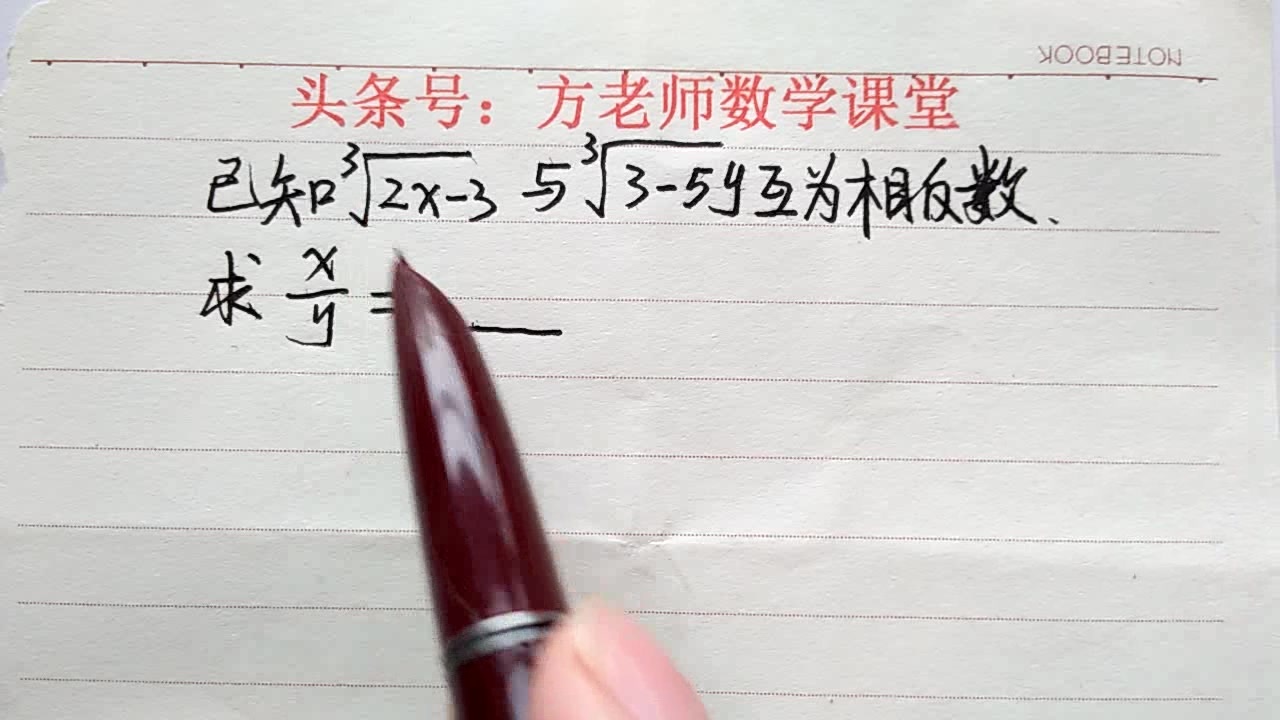 NOTEBOOK
头条号：方老师数学课堂
已知∛(2x-3) 与 ∛(3-5y)互为相反数、
求 x/y = ___